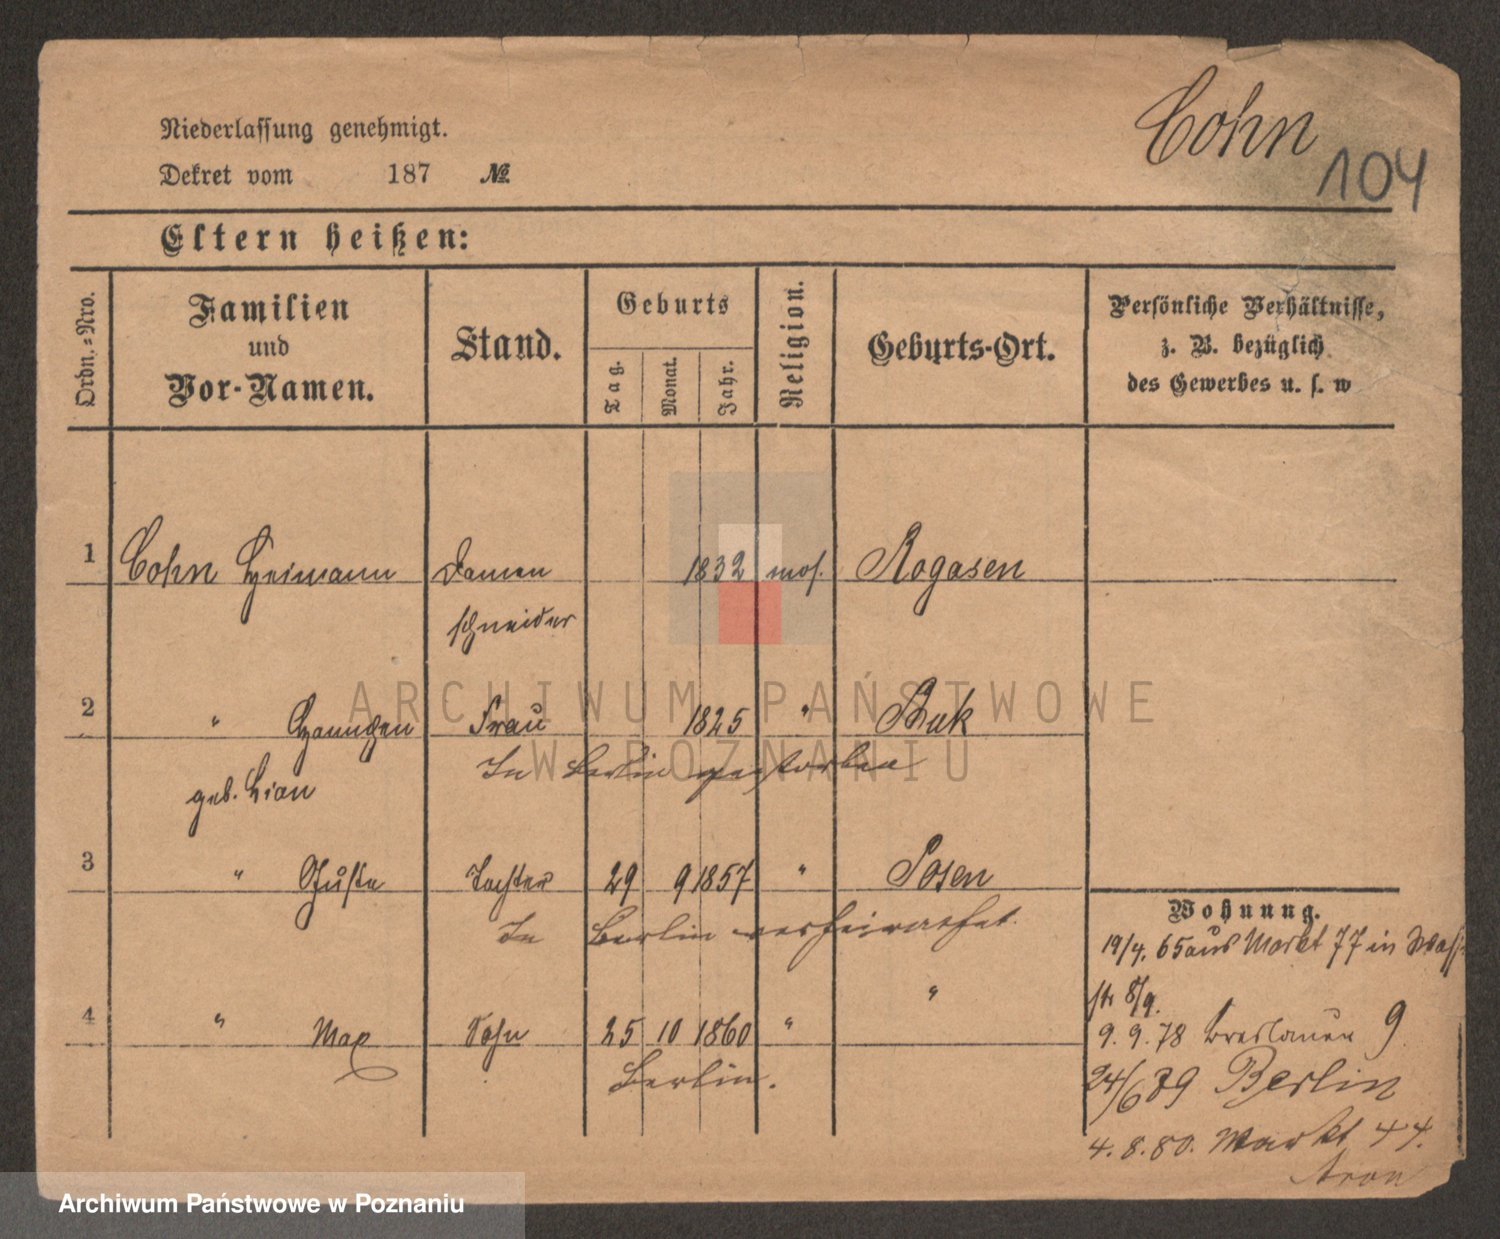 Cohn
104
Niederlassung genehmigt.
Dekret vom 187 №
Eltern heißen:
Ordn.=Nro.
Familien und Vor-Namen.
Stand.
Geburts
Tag.
Monat.
Jahr.
Religion.
Geburts-Ort.
Persönliche Verhältnisse,
z. B. bezüglich
des Gewerbes u. s. w
1 Cohn Heimann Damen 1832 mos. Rogasen
schneider
2 " Hannchen Frau 1825 " Buk
geb. Lion In Berlin gestorben
3 " Guste Tochter 29 9 1857 " Posen
In Berlin verheirathet.
4 " Max Sohn 25 10 1860 " "
Berlin.
Wohnung.
19/4. 65 aus Markt 77 in
str 8/9.
9. 9. 78 Breslauer 9
24/6 79 Berlin
4. 8. 80. Markt 44.
Aron
ARCHIWUM PAŃSTWOWE
W POZNANIU
Archiwum Państwowe w Poznaniu